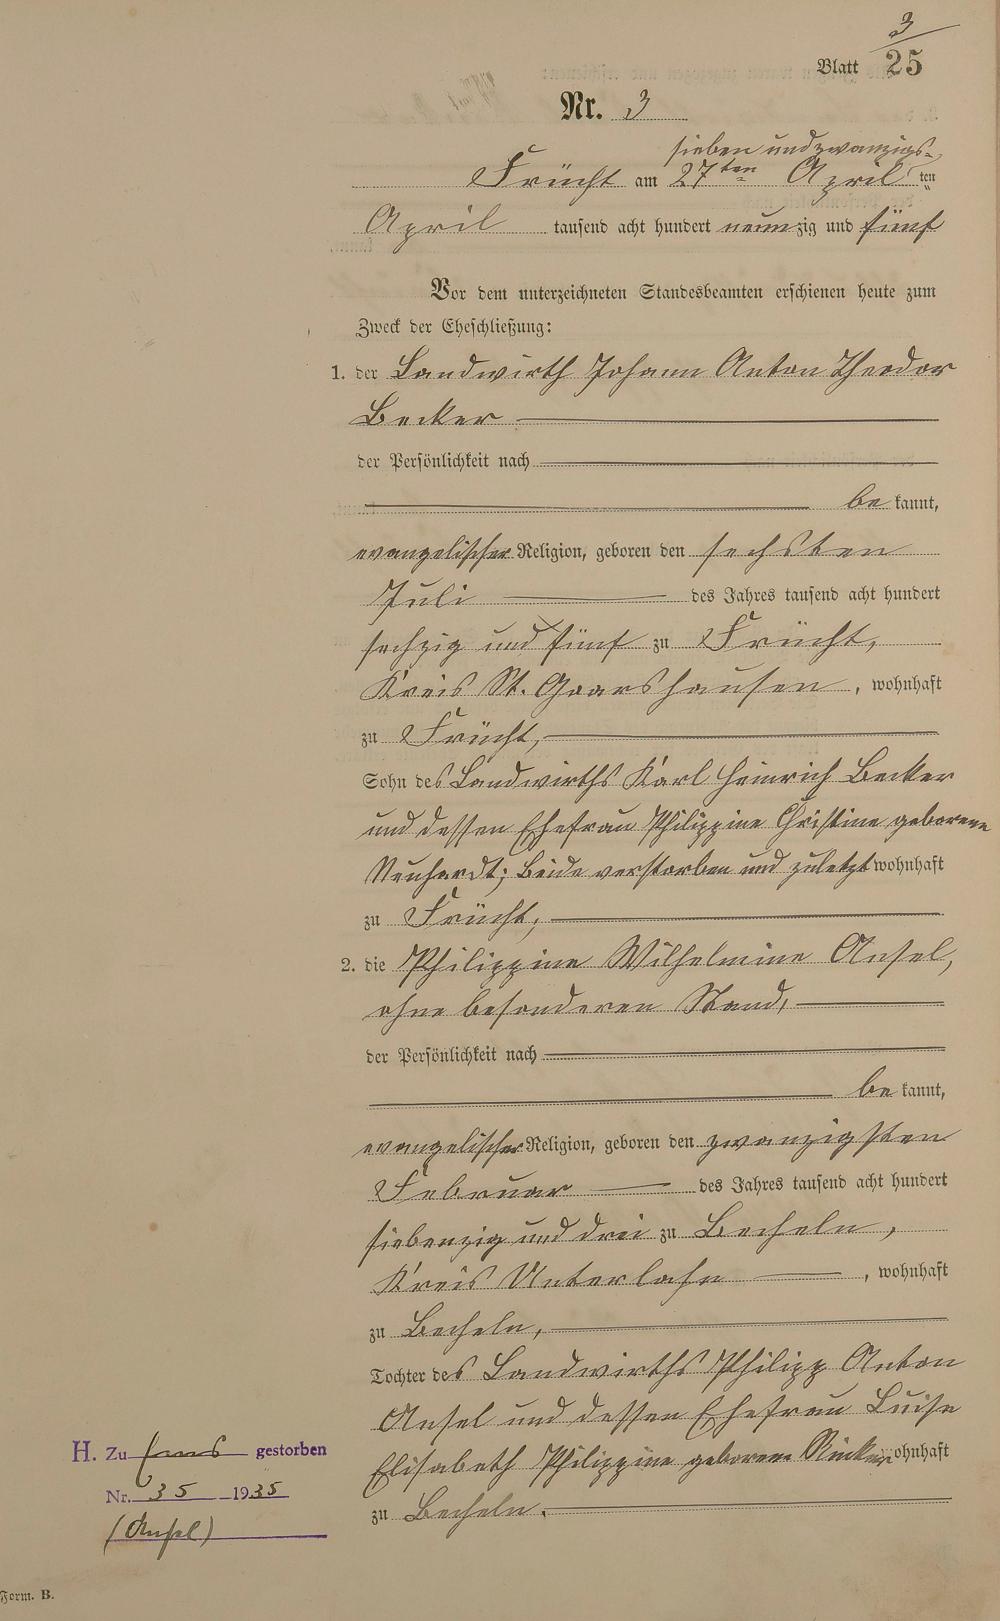 3
Blatt 25
Nr. 3
sieben undzwanzigs-
Frücht am 27ten April ten
April tausend acht hundert neunzig und fünf
Vor dem unterzeichneten Standesbeamten erschienen heute zum
Zweck der Eheschließung:
1. der Landwirth Johann Anton Theodor
Becker
der Persönlichkeit nach
be kannt,
evangelischer Religion, geboren den sechsten
Juli des Jahres tausend acht hundert
sechzig und fünf zu Frücht,
Kreis St. Goarshausen, wohnhaft
zu Frücht,
Sohn des Landwirths Karl Heinrich Becker
und dessen Ehefrau Philippine Christine geborene
Neuhardt; beide verstorben und zuletzt wohnhaft
zu Frücht,
2. die Philippine Wilhelmine Ansel,
ohne besonderen Stand,
der Persönlichkeit nach
be kannt,
evangelischer Religion, geboren den zwanzigsten
Februar des Jahres tausend acht hundert
siebenzig und drei zu Becheln,
Kreis Unterlahn, wohnhaft
zu Becheln,
Tochter des Landwirths Philipp Anton
Ansel und dessen Ehefrau Luise
Elisabeth Philippine geborene wohnhaft
zu Becheln.
H. Zu Ems gestorben
Nr. 35 1935
(Ansel)
Form. B.